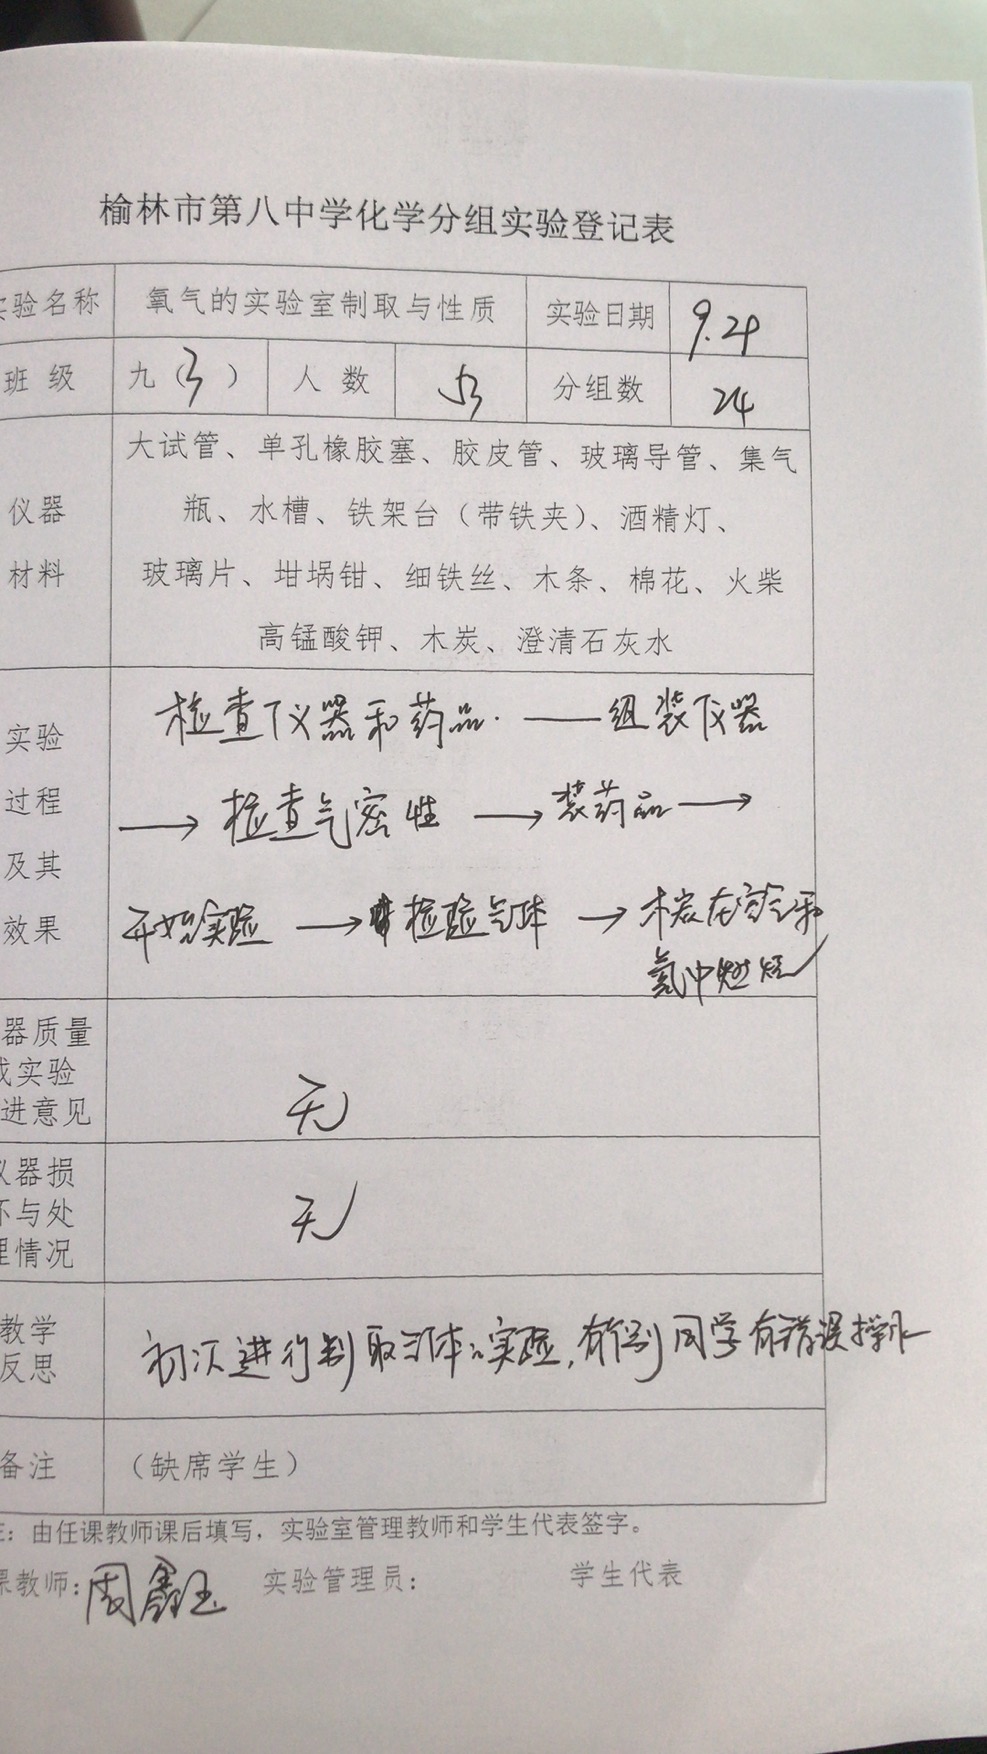 榆林市第八中学化学分组实验登记表
验名称 氧气的实验室制取与性质 实验日期
班 级 九（3） 人 数 53 分组数 24
大试管、单孔橡胶塞、胶皮管、玻璃导管、集气
仪器 瓶、水槽、铁架台（带铁夹）、酒精灯、
材料 玻璃片、坩埚钳、细铁丝、木条、棉花、火柴
高锰酸钾、木炭、澄清石灰水
实验 检查仪器和药品. ——组装仪器
过程 → 检查气密性 → 装药品 →
及其
效果 开始实验 → 检验气体 → 木炭在空气和
氧中燃烧
器质量
实验
进意见 无
器损
与处 无
情况
教学 初次进行制取气体的实验,有个别同学有错误操作
反思
备注 （缺席学生）
：由任课教师课后填写，实验室管理教师和学生代表签字。
教师：周鑫玉 实验管理员： 学生代表